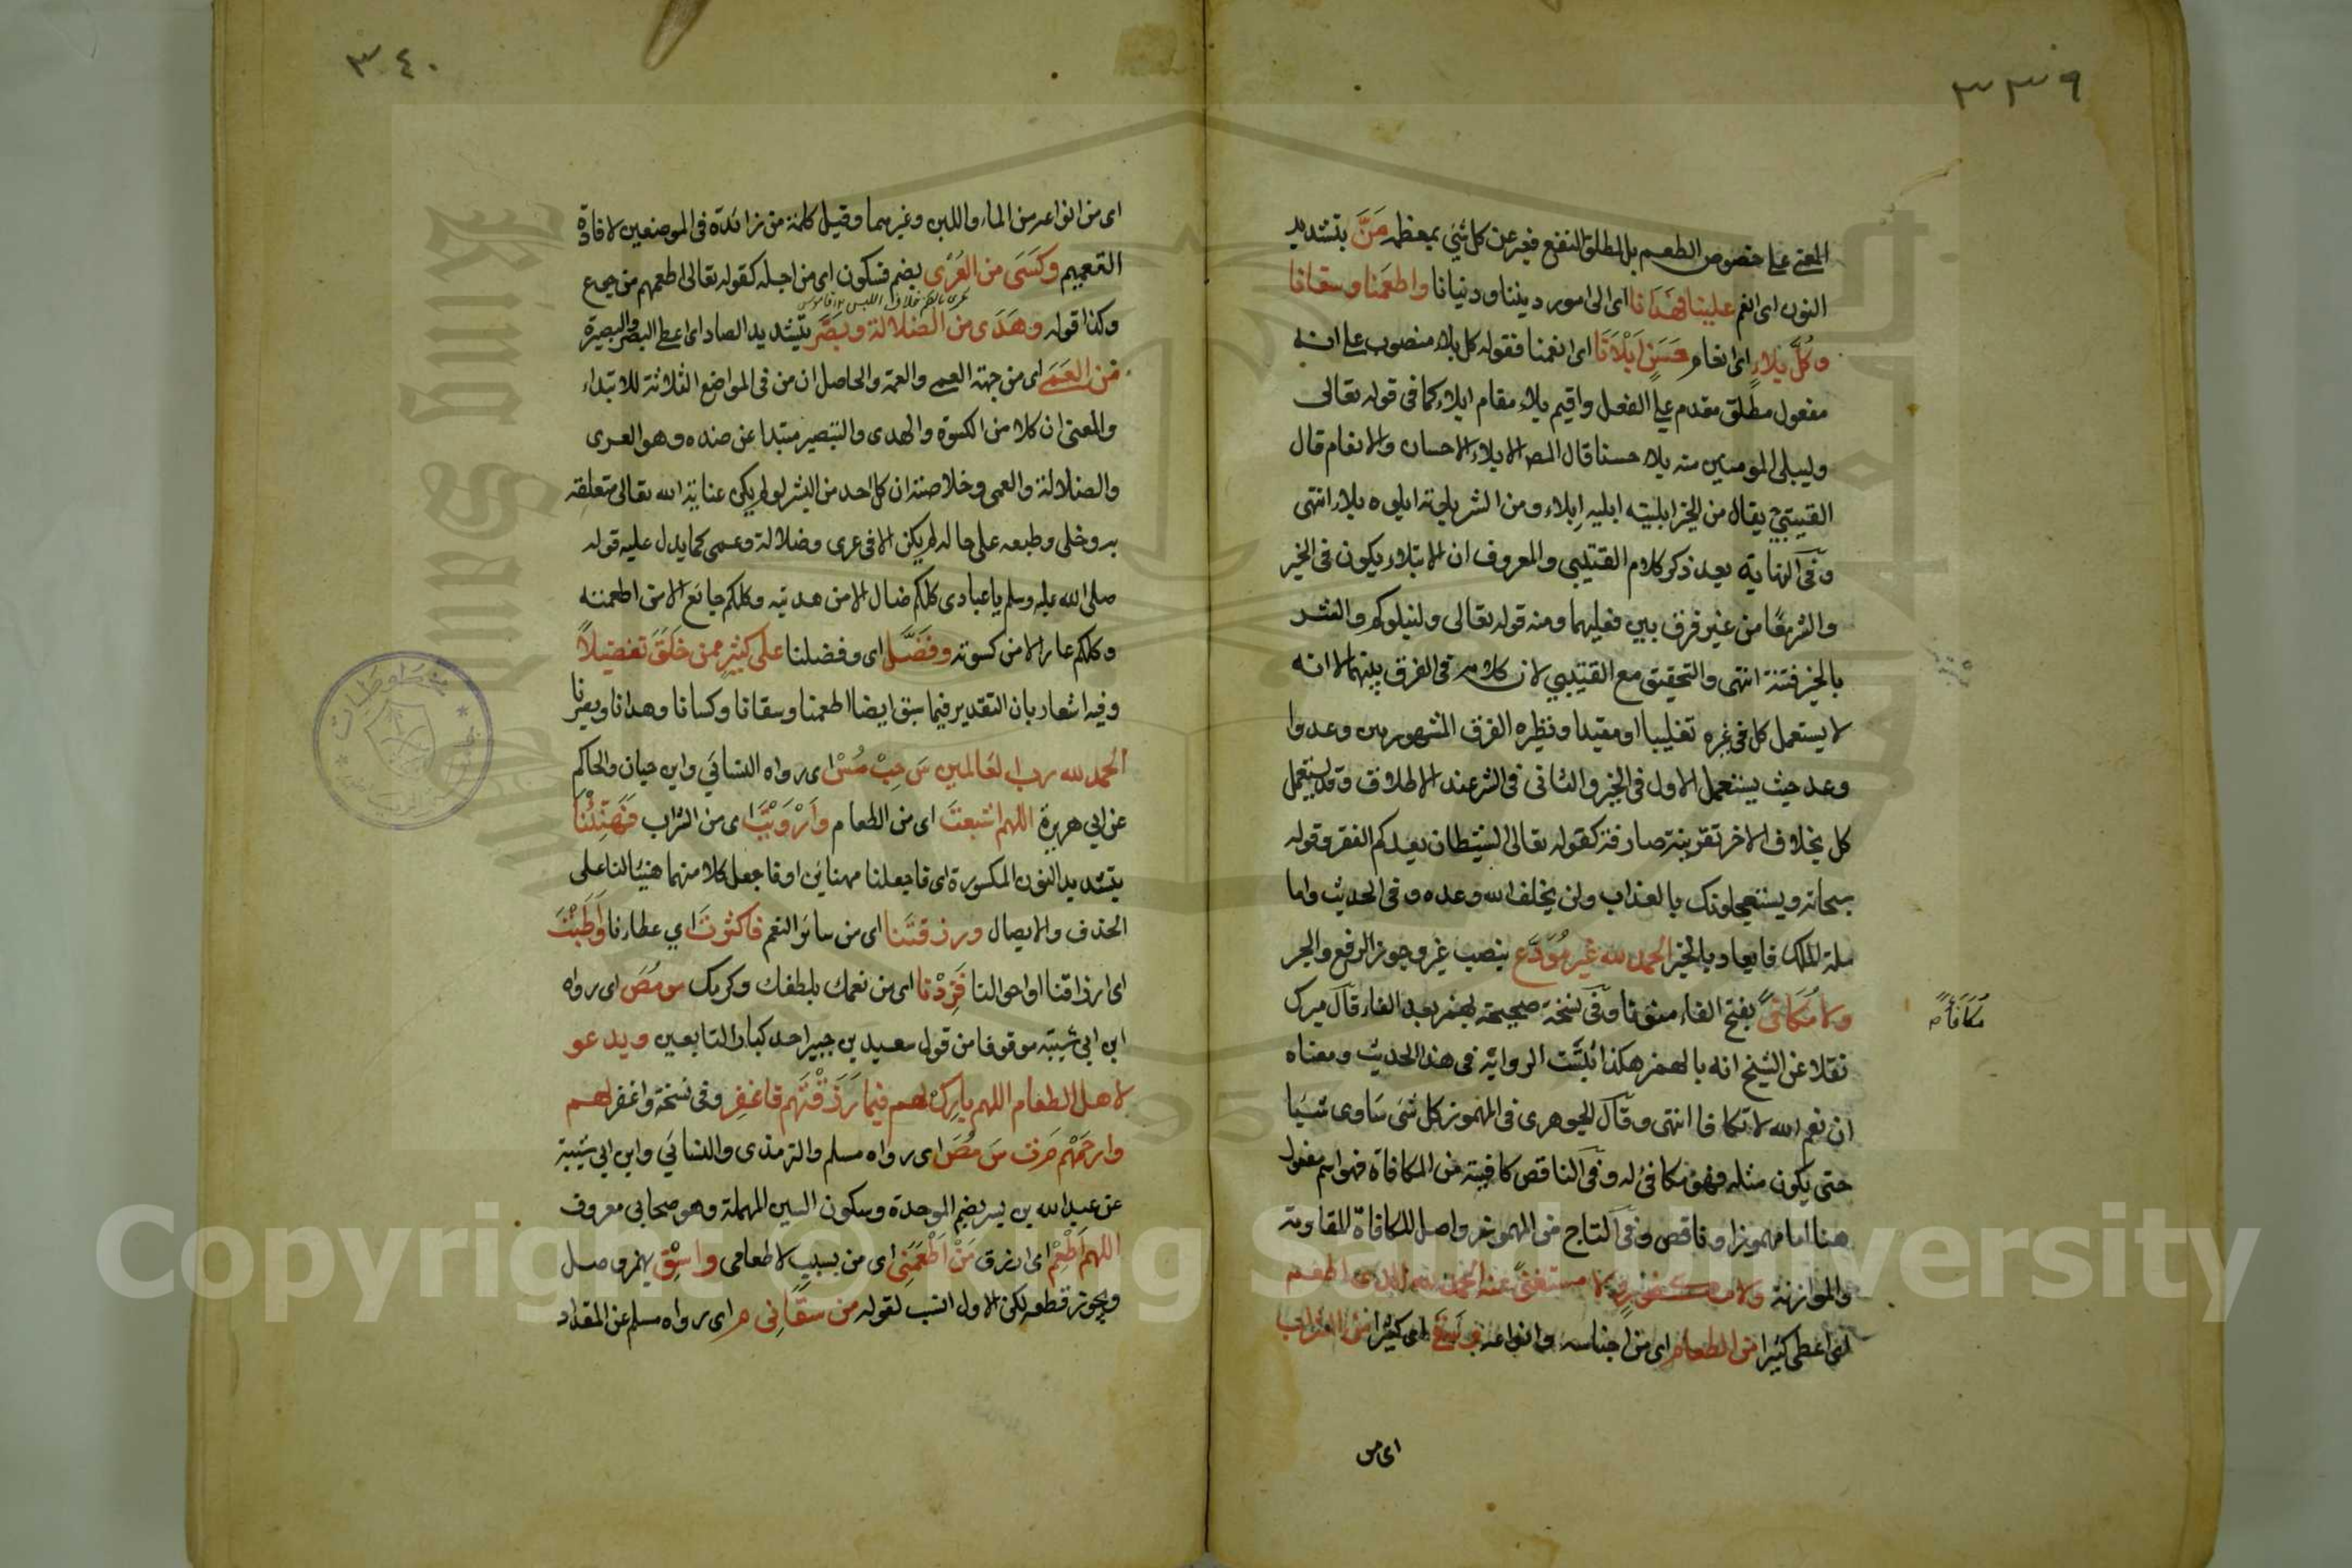 ٣٣٩
المعنى على خصوص الطعم بل المطلق النفع فيعبر عن كل شيء بمعظمه مَنَّ بتشديد
النون اى انعم علينا فهَدَانا اى الى امور ديننا ودنيانا واطعَمَنا وسقانا
وكُلَّ بلاءٍ اى انعام حَسَنٍ اَبْلَانَا اى انعمنا فقوله كل بلاء منصوب على انه
مفعول مطلق مقدم على الفعل واقيم بلاء مقام ابلاء كما فى قوله تعالى
وليبلى المومنين منه بلاء حسنا قال المصـ الابلاء الاحسان والانعام قال
القتيبى يقال من الخير ابليته ابليه اِبلاء ومن الشر بلوته ابلوه بلاء انتهى
وفى النهاية بعد ذكر كلام القتيبى والمعروف ان الابتلاء يكون فى الخير
والشر معًا من غير فرق بين فعليهما ومنه قوله تعالى ولنبلوكم والشر
بالخير فتنة انتهى والتحقيق مع القتيبى لان كلامه فى الفرق بينهما الا انه
لا يستعمل كل فى غيره تغليبا او مقيدا ونظيره الفرق المشهور بين وعدوا
وعد حيث يستعمل الاول فى الخير والثانى فى الشر عند الاطلاق وقد يستعمل
كل بخلاف الاخر بقرينة صارفة كقوله تعالى الشيطان يعدكم الفقر وقوله
سبحانه ويستعجلونك بالعذاب ولن يخلف الله وعده وفى الحديث واما
ملة الملك فايعاد بالخير الحمد لله غير مُوَدَّع بنصب غير وجوز الرفع والجر
ولا مُكَافىً بفتح الفاء منونا وفى نسخة صحيحة بهمز بعد الفاء قال ميرك
مُكَافَأً
نقلا عن الشيخ انه بالهمز هكذا ثبتت الرواية فى هذا الحديث ومعناه
ان نعم الله لا تكافا انتهى وقال الجوهرى فى المهموز كل شئ ساوى شيئا
حتى يكون مثله فهو مكافئ له وفى الناقص كافيته من المكافاة فهو اسم مفعول
هنا اما مهموزا وناقص وفى التاج من المهموز واصل المكافاة المقاومة
والموازنة ولا مكفورٍ ولا مستغنًى عنه الحمد لله الذى اطعم
اى اعطى كثيرا من الطعام اى من اجناسه وانواعه وسقى اى كثيرا من الشراب
اى من
٣٤٠
اى من انواعه من الماء واللبن وغيرهما وقيل كلمة من زائدة فى الموضعين لافادة
التعميم وكَسَى من العُرْى بضم فسكون اى من اجله كقوله تعالى اطعمهم من جوع
عرى بالضم خلاف اللبس ١٢ قاموس
وكذا قوله وهَدَى من الضلالة وبَصَّر بتشديد الصاد اى اعطى البصر والبصيرة
من العَمَى اى من جهة العمى والعمه والحاصل ان من فى المواضع الثلاثة للابتداء
والمعنى ان كلا من الكسوة والهدى والتبصير مبتدا عن ضده وهو العرى
والضلالة والعمى وخلاصته ان كل احد من البشر لو لم يكن عناية الله تعالى متعلقة
به وخلى وطبعه على حاله لم يكن الا فى عرى وضلالة وعمى كما يدل عليه قوله
صلى الله عليه وسلم يا عبادى كلكم ضال الا من هديته وكلكم جائع الا من اطعمته
وكلكم عار الا من كسوته وفضَّل اى وفضلنا على كثيرٍ ممن خلَقَ تفضيلاً
وفيه اشعار بان التقدير فيما سبق ايضا اطعمنا وسقانا وكسانا وهدانا وبصرنا
الحمد لله رب العالمين س حِبْ مُسْ اى رواه النسائى وابن حبان والحاكم
عن ابى هريرة اللهم اشبعتَ اى من الطعام وأرْوَيْتَ اى من الشراب فَهَنِّئْنَا
بتشديد النون المكسورة اى فاجعلنا مهنائين او فاجعل كلا منهما هنيئا لنا على
الحذف والايصال ورزقتَنا اى من سائر النعم فاكثرتَ اى عطاءنا وَأَطَبْتَ
اى ارزاقنا او احوالنا فَزِدْنا اى من نعمك بلطفك وكرمك مو مُصَ اى رواه
ابن ابى شيبة موقوفا من قول سعيد بن جبير احد كبار التابعين ويدعو
لاهل الطعام اللهم بارِكْ لهم فيما رَزَقْتَهم فاغفِر وفى نسخة واغفر لهم
وارحَمْهم مَ ت سَ مُصَ اى رواه مسلم والترمذى والنسائى وابن ابى شيبة
عن عبد الله بن بسر بضم الموحدة وسكون السين المهملة وهو صحابى معروف
اللهم اَطعِمْ اى ارزق مَنْ اَطعَمَنِى اى من بسببٍ لاطعامى واسْقِ بهمز وصل
ويجوز قطعه لكن الاول انسب لقوله من سقَانِى م اى رواه مسلم عن المقداد
Copyright © King Saud University